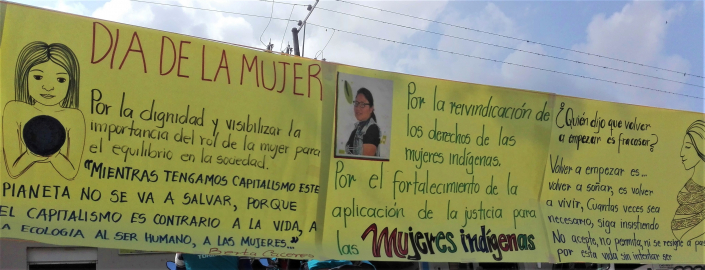 DIA DE LA MUJER
Por la dignidad y visibilizar la
importancia del rol de la mujer para
el equilibrio en la sociedad.
"MIENTRAS TENGAMOS CAPITALISMO ESTE
PLANETA NO SE VA A SALVAR, PORQUE
EL CAPITALISMO ES CONTRARIO A LA VIDA, A
A ECOLOGIA AL SER HUMANO, A LAS MUJERES..."
Berta Cáceres
Por la reivindicación de
los derechos de las
mujeres indígenas.
Por el fortalecimiento de la
aplicación de la justicia para
las Mujeres indígenas
¿Quién dijo que volver
a empezar es fracasar?
Volver a empezar es...
volver a soñar, es volver
a vivir, Cuantas veces sea
necesario, siga insistiendo
No acepte, no permita, ni se resigne a pasar
por esta vida sin intentar ser